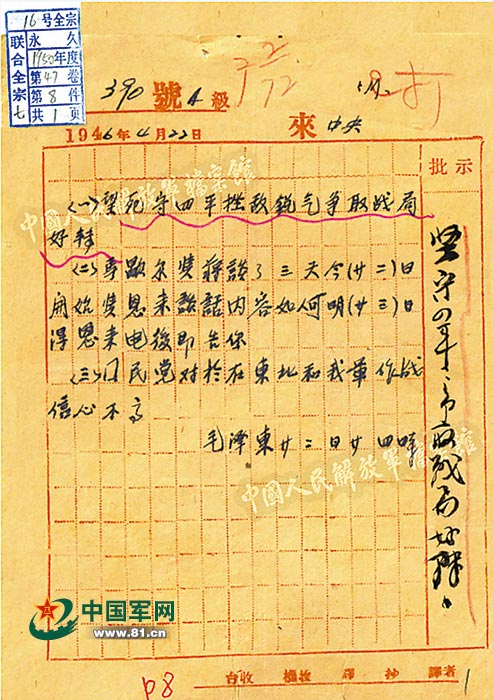 16号全宗
联合全宗七
永久
1950年度
第47卷
第8件
共1页
390 號 A 級
1946年4月22日 來 中央
批示
(一)望死守四平挫敌锐气争取战局
好转
(二)馬歇尔雙蔣談了三天今(廿二)日
開始雙恩来談話内容如何明(廿三)日
得恩来电後即告你
(三)国民党对於在東北和我軍作战
信心不高
毛泽東廿二日廿四時
坚守四平、争取战局好转。
中国人民解放军档案馆
中国人民解放军档案馆
中国军网
www.81.cn
台收 譯 抄 譯者 1
p8